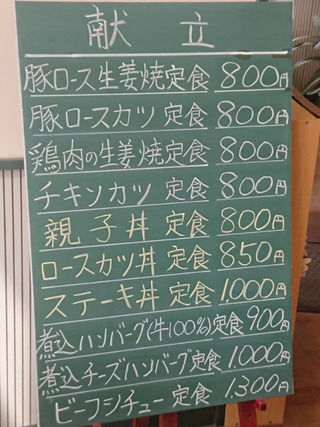 献立
豚ロース生姜焼定食 800円
豚ロースカツ定食 800円
鶏肉の生姜焼定食 800円
チキンカツ定食 800円
親子丼定食 800円
ロースカツ丼定食 850円
ステーキ丼定食 1,000円
煮込ハンバーグ(牛100%)定食 900円
煮込チーズハンバーグ定食 1,000円
ビーフシチュー定食 1,300円